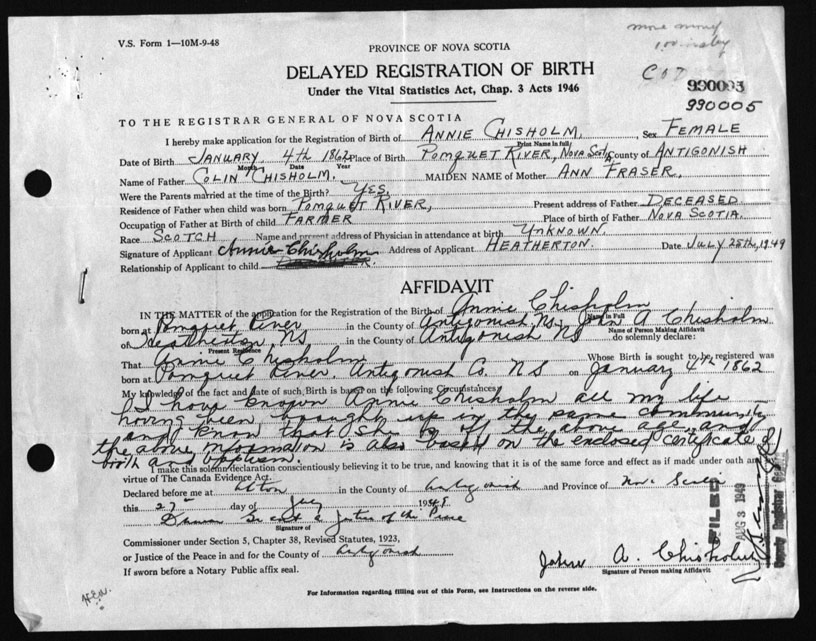 V.S. Form 1—10M-9-48
PROVINCE OF NOVA SCOTIA
more
DELAYED REGISTRATION OF BIRTH
COD
Under the Vital Statistics Act, Chap. 3 Acts 1946
990005
990005
TO THE REGISTRAR GENERAL OF NOVA SCOTIA
I hereby make application for the Registration of Birth of ANNIE CHISHOLM. Sex FEMALE
Print Name in full
Date of Birth JANUARY 4th 1862 Place of Birth POMQUET RIVER, NOVA SCOTIA County of ANTIGONISH
Month Date Year
Name of Father COLIN CHISHOLM. MAIDEN NAME of Mother ANN FRASER.
Were the Parents married at the time of the Birth? YES.
Residence of Father when child was born POMQUET RIVER, Present address of Father DECEASED
Occupation of Father at Birth of child FARMER Place of birth of Father NOVA SCOTIA.
Race SCOTCH Name and present address of Physician in attendance at birth UNKNOWN.
Signature of Applicant Annie Chisholm Address of Applicant HEATHERTON. Date JULY 25th, 1949
Relationship of Applicant to child
AFFIDAVIT
IN THE MATTER of the application for the Registration of the Birth of Annie Chisholm
Name in Full
born at Pomquet River in the County of Antigonish NS, John A Chisholm
Name of Person Making Affidavit
of Heatherton, NS in the County of Antigonish NS do solemnly declare:
Present Residence
That Annie Chisholm Whose Birth is sought to be registered was
born at Pomquet River, Antigonish Co. NS on January 4th 1862
My knowledge of the fact and date of such Birth is based on the following Circumstances
I have known Annie Chisholm all my life
having been brought up in the same community
and know that she is of the above age and
the above information is also based on the enclosed certificate of
birth and baptism.
I make this solemn declaration conscientiously believing it to be true, and knowing that it is of the same force and effect as if made under oath and
virtue of The Canada Evidence Act.
Declared before me at in the County of Antigonish and Province of Nova Scotia
this 27 day of July 1949
a Justice of the Peace
Signature of
Commissioner under Section 5, Chapter 38, Revised Statutes, 1923,
or Justice of the Peace in and for the County of Antigonish
If sworn before a Notary Public affix seal.
John A. Chisholm
Signature of Person making Affidavit
FILED
AUG 3 1949
Deputy Registrar
For Information regarding filling out of this Form, see Instructions on the reverse side.